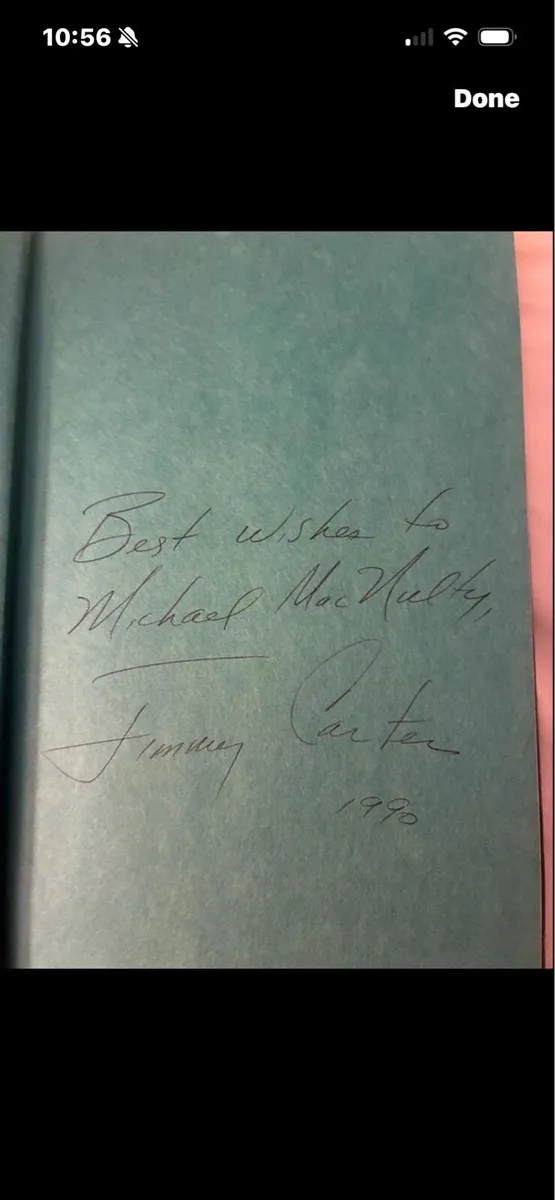 10:56
Done
Best wishes to
Michael MacNulty,
Jimmy Carter
1990